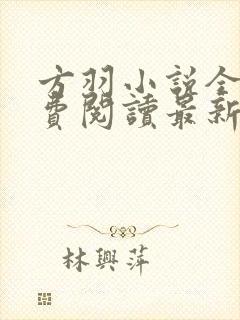 方羽小說全
費閱讀最新
林興萍